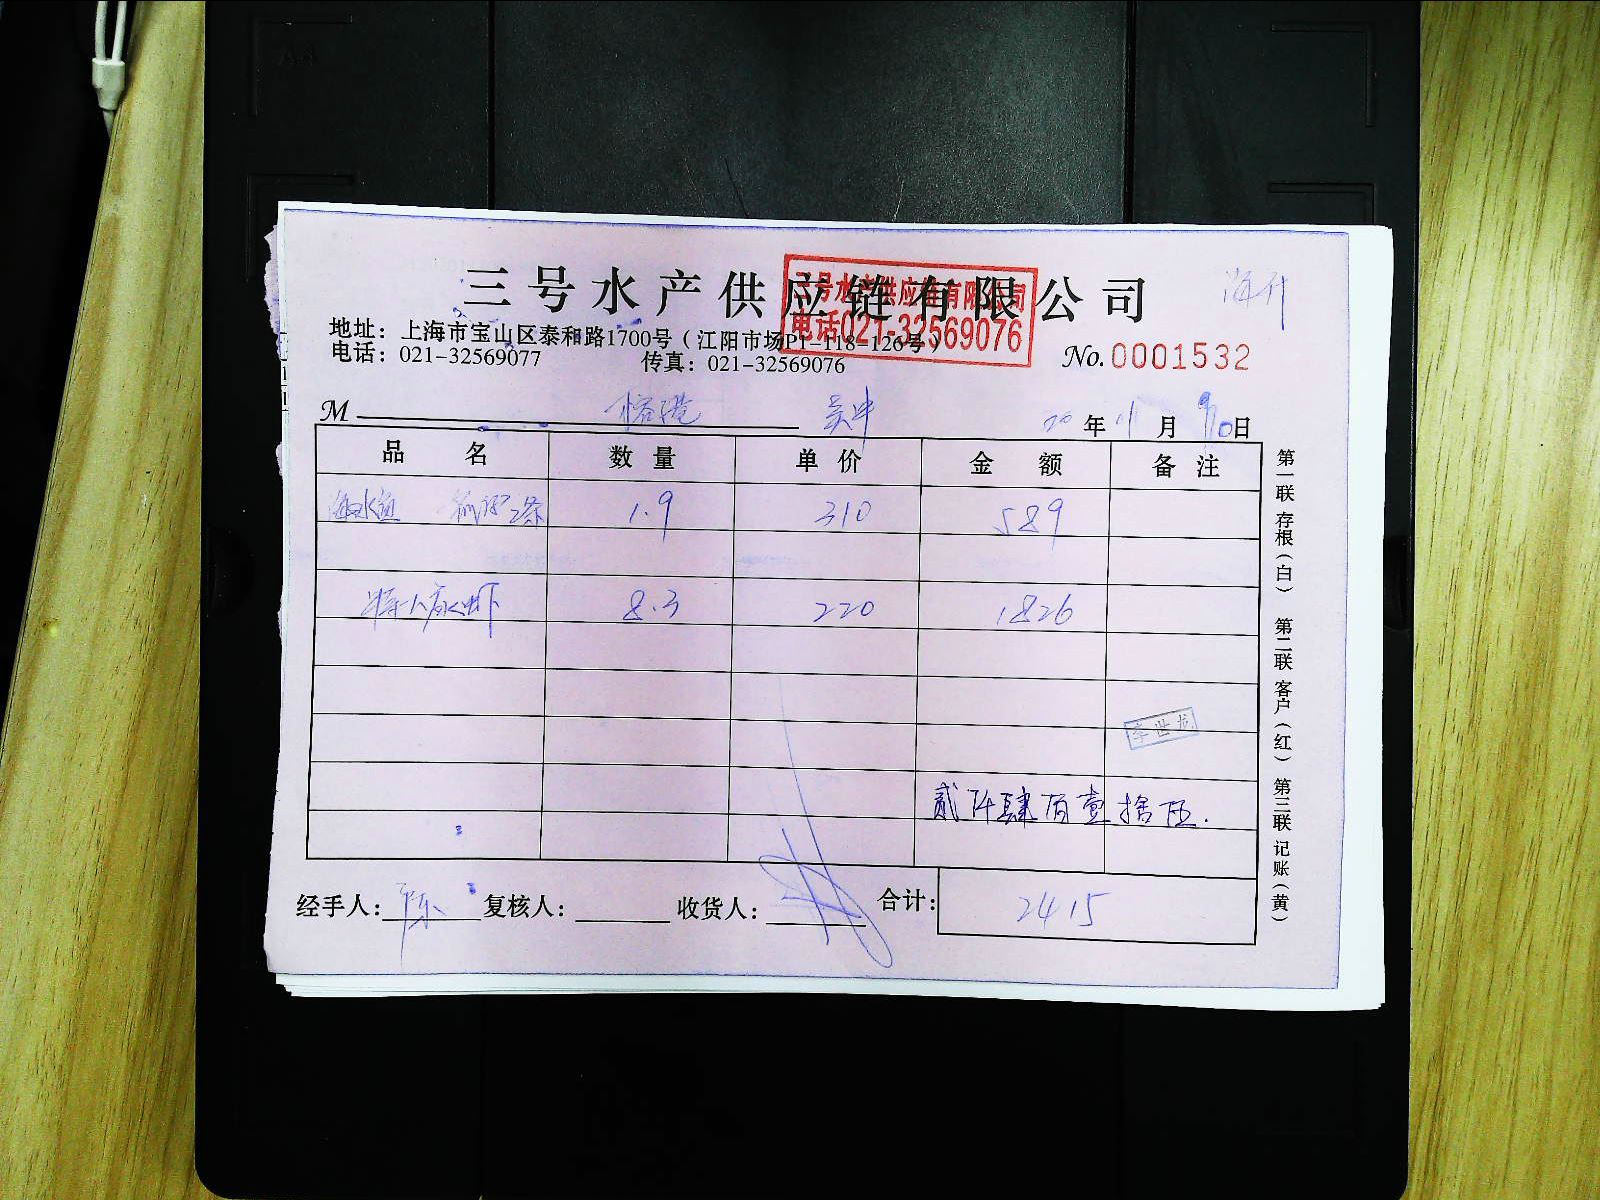 三号水产供应链有限公司
海升
三号水产供应链有限公司
电话021-32569076
地址：上海市宝山区泰和路1700号（江阳市场P1-118-126号）
电话：021-32569077 传真：021-32569076
No.0001532
M 榕港 吴中 20年11月 日
品名 数量 单价 金额 备注
海水鱼 2条 1.9 310 589
8.3 220 1826
李世龙
贰仟肆佰壹拾伍.
经手人：陈 复核人： 收货人： 合计：2415
第一联存根（白） 第二联客户（红） 第三联记账（黄）